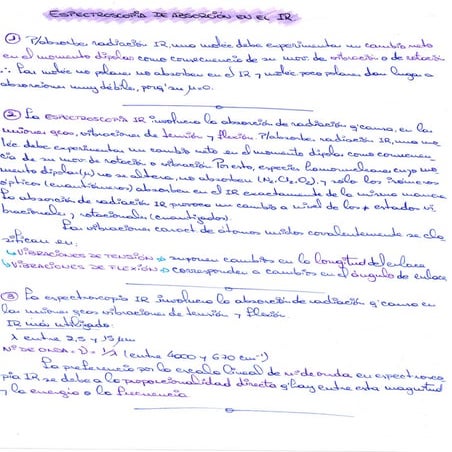 ESPECTROSCOPÍA DE ABSORCIÓN EN EL IR
① P/absorber radiación IR, una moléc debe experimentar un cambio neto
en el momento dipolar como consecuencia de su mov. de vibración o de rotación.
∴ Las moléc no polares no absorben en el IR y moléc poco polares dan lugar a
absorciones muy débiles, porq' su μ≈0.
② La ESPECTROSCOPÍA IR involucra la absorción de radiación q' causa, en las
uniones qcas, vibraciones de tensión y flexión. P/absorber radiación IR, una mo
léc debe experimentar un cambio neto en el momento dipolar como consecuen
cia de su mov de rotación o vibración. Por esto, especies homonucleares cuyo mo
mento dipolar (μ) no se altera, no absorben (N₂, Cl₂, O₂), y solo los isómeros
ópticos (enantiómeros) absorben en el IR exactamente de la misma manera.
La absorción de radiación IR provoca un cambio a nivel de los ≠ estados vi
bracionales y rotacionales (cuantizados).
Las vibraciones caract de átomos unidos covalentemente se cla
sifican en:
VIBRACIONES DE TENSIÓN → suponen cambios en la longitud del enlace
VIBRACIONES DE FLEXIÓN → corresponden a cambios en el ángulo de enlace
③ La espectroscopía IR involucra la absorción de radiación q' causa en
las uniones qcas vibraciones de tensión y flexión.
IR más utilizado:
λ entre 2,5 y 15 μm
Nº DE ONDA = ν̄ = 1/λ (entre 4000 y 670 cm⁻¹)
La preferencia por la escala lineal de nº de onda en espectrosco
pía IR se debe a la proporcionalidad directa q' hay entre esta magnitud
y la energía o la frecuencia